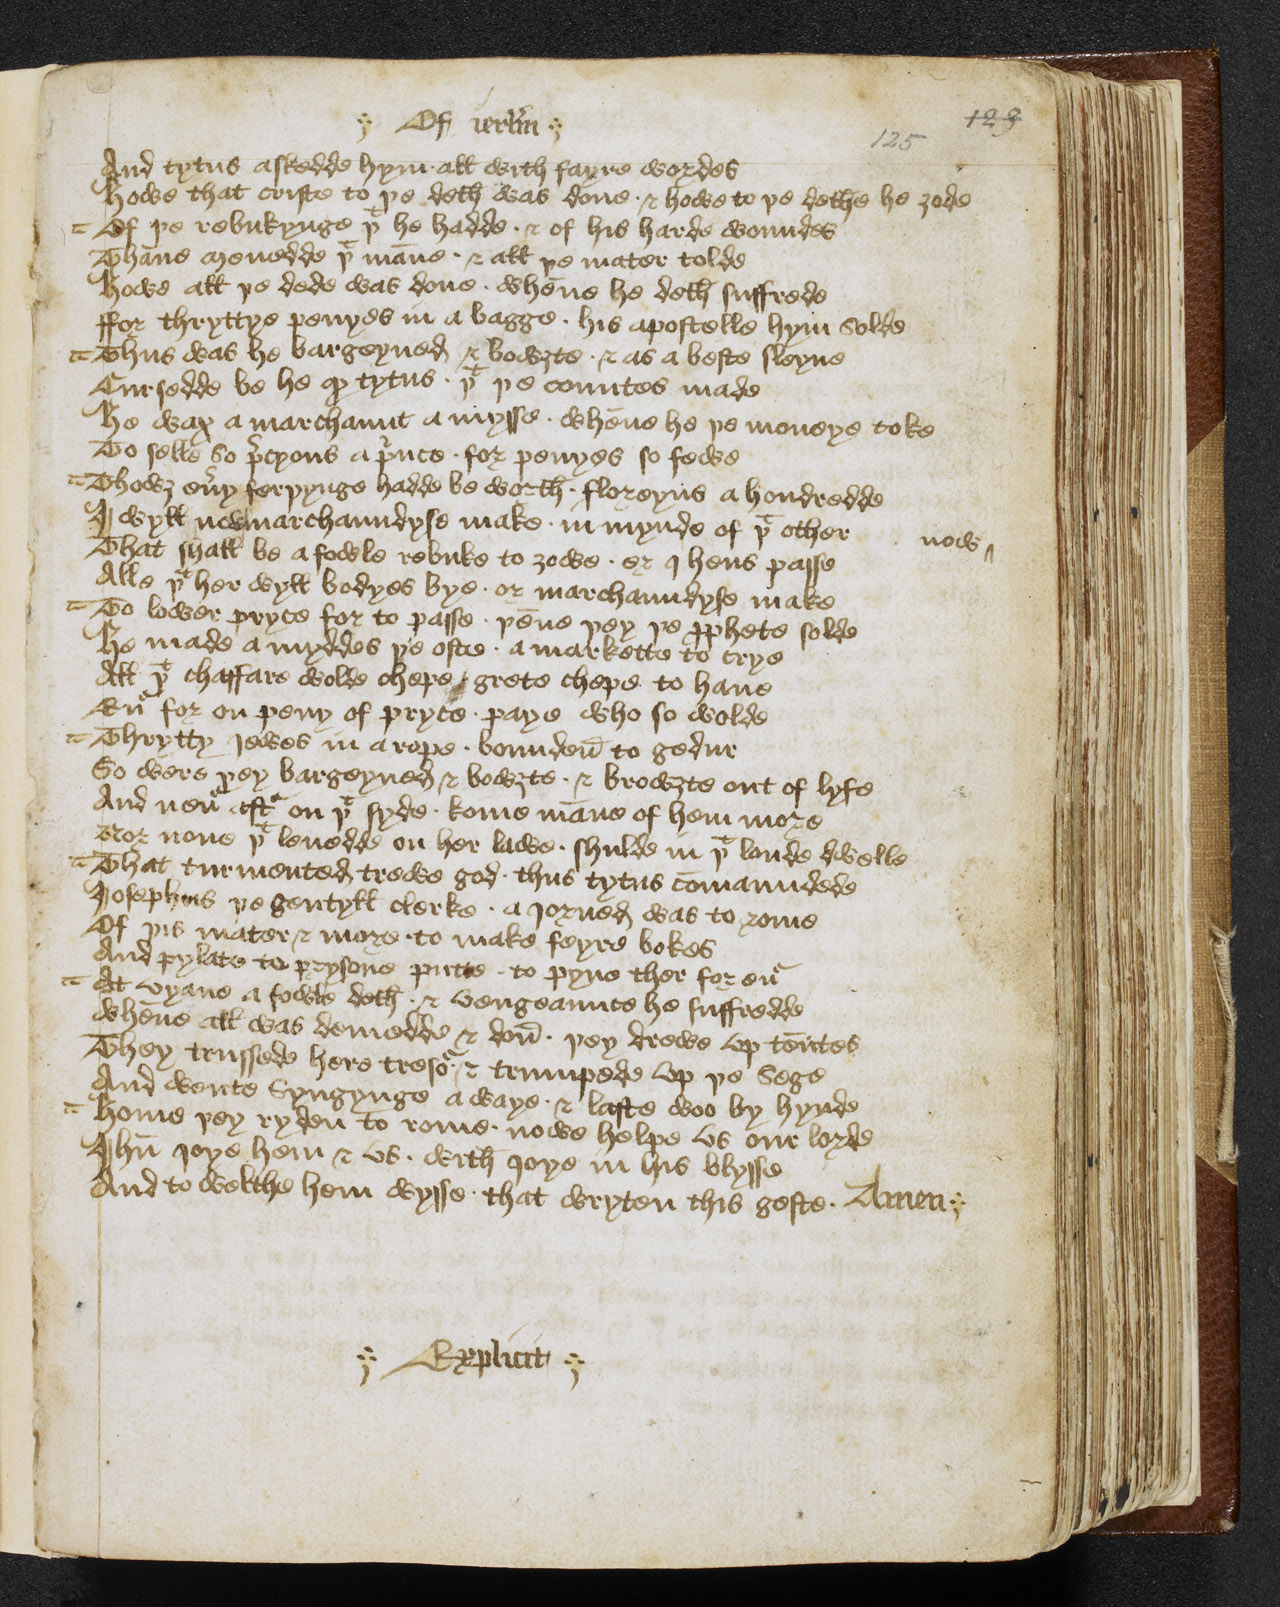 Of ierlm̄
123
125
And tytus askedde hym · all with fayre wordes
Howe that criste to þe deth was done · & howe to þe dethe he ȝode
Of þe rebukynge þt he hadde · & of his harde woundes
Thāne meuedde þt māne · & all þe mater tolde
Howe all þe dede was done · whēne he deth suffrede
ffor thryttye penyes in a bagge · his apostelle hym solde
Thus was he bargeyned & bowȝte · & as a beste sleyne
Cursedde be he qͦ tytus · þt þe countes made
He wax a marchaunt amysse · whēne he þe moneye toke
To selle so p̄cyous a p̄nce · for penyes so fewe
Thowȝ eūy ferþynge hadde be worth · floreyns a hondredde
I wyll new marchaundyse make · in mynde of þt other
nows
That shall be a fowle rebuke to ȝowe · er I hens passe
Alle þt her wyll bodyes bye · or marchaundyse make
To lower pryce for to passe · þēne þey þe ꝓphete solde
He made amyddes þe oste · a markette to crye
All þt chaffare wolde chepe · grete chepe to haue
Eū for on peny of pryce · paye who so wolde
Thrytty Iewes in a rope · boundēn to gedur
So were þey bargeyned & bowȝte · & browȝte out of lyfe
And neū aft on þt syde · kome māne of hem more
Nor none þt leuedde on her lawe · shulde in þt londe dwelle
That turmented trewe god · thus tytus cōmaundede
Iosephus þe gentyll clerke · a Iorned was to rome
Of þis mater & more · to make feyre bokes
And pylate to prysone putte · to pyne ther for eū
At vyane a fowle deth · & vengeaunce he suffredde
whēne all was demedde & don̄ · þey drewe vp tentes
They trussede here treso & trumpede vp þe sege
And wente syngynge awaye · & lafte woo by hynde
Home þey ryden to rome · nowe helpe vs our lorde
Ihū Ioye hem & vs · with Ioye in his blysse
And to welthe hem wysse · that wryten this geste · Amen
Explicit